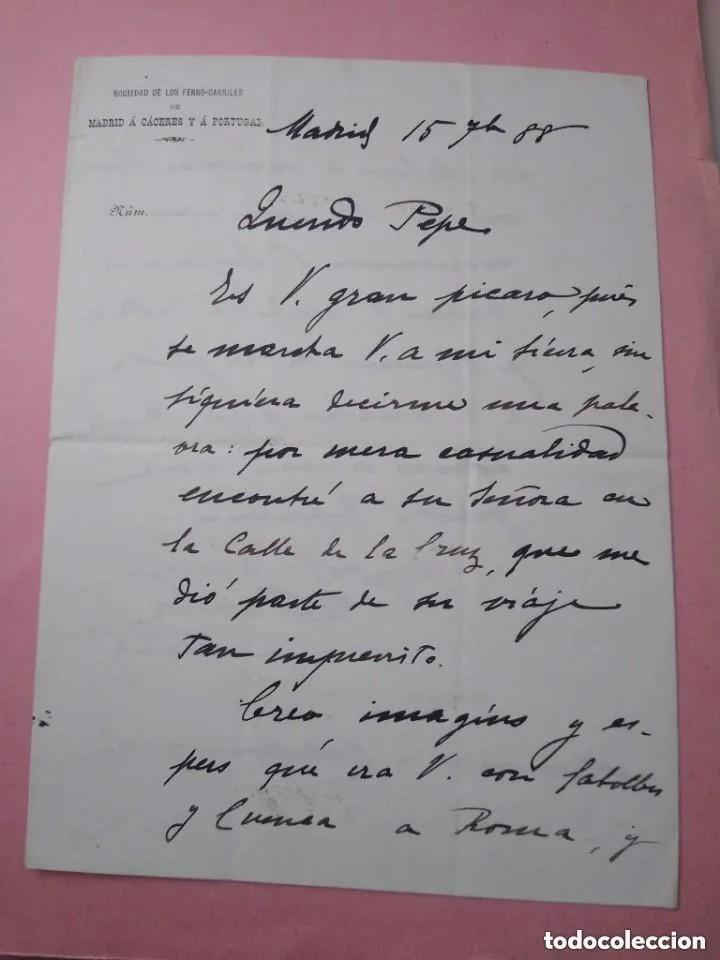 SOCIEDAD DE LOS FERRO-CARRILES
DE
MADRID Á CÁCERES Y Á PORTUGAL
Madrid 15 7b 88
Núm.
Querido Pepe,
Es V. gran picaro, pués
se marcha V. a mi tierra, sin
siquiera decirme una pala-
vra: por mera casualidad
encontré a su Señora en
la Calle de la Cruz, que me
dió parte de su viaje
tan imprevisto.
Creo imagino y es-
pero que ira V. con
y Cuenca a Roma, y
todocoleccion